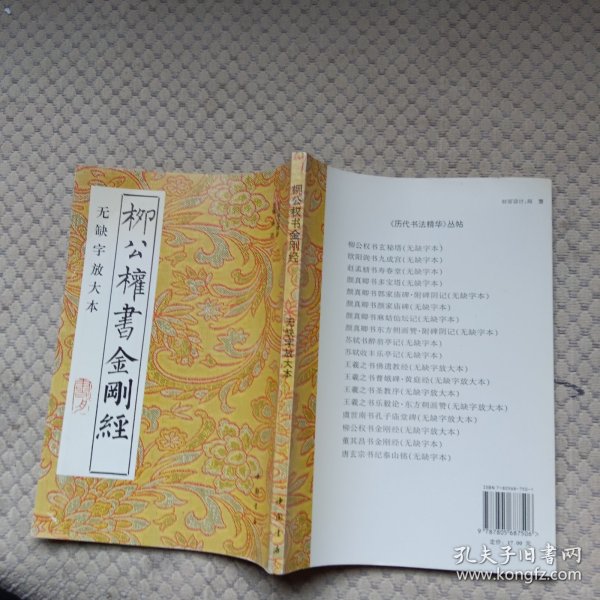 柳公權書金剛經
无缺字放大本
中国书店
柳公权书金刚经
无缺字放大本
中国书店
《历代书法精华》丛帖
柳公权书玄秘塔(无缺字本)
欧阳询书九成宫(无缺字本)
赵孟頫书寿春堂(无缺字本)
颜真卿书多宝塔(无缺字本)
颜真卿书郭家庙碑·附碑阴记(无缺字本)
颜真卿书颜家庙碑(无缺字本)
颜真卿书麻姑仙坛记(无缺字本)
颜真卿书东方朔画赞·附碑阴记(无缺字本)
苏轼书醉翁亭记(无缺字本)
苏轼书丰乐亭记(无缺字本)
王羲之书佛遗教经(无缺字放大本)
王羲之书曹娥碑·黄庭经(无缺字放大本)
王羲之书圣教序(无缺字放大本)
王羲之书乐毅论·东方朔画赞(无缺字放大本)
虞世南书孔子庙堂碑(无缺字放大本)
柳公权书金刚经(无缺字放大本)
董其昌书金刚经(无缺字本)
唐玄宗书纪泰山铭(无缺字本)
ISBN 7-80568-750-1
9 787805 687506 >
定价: 17.00 元
孔夫子旧书网
www.kongfz.com